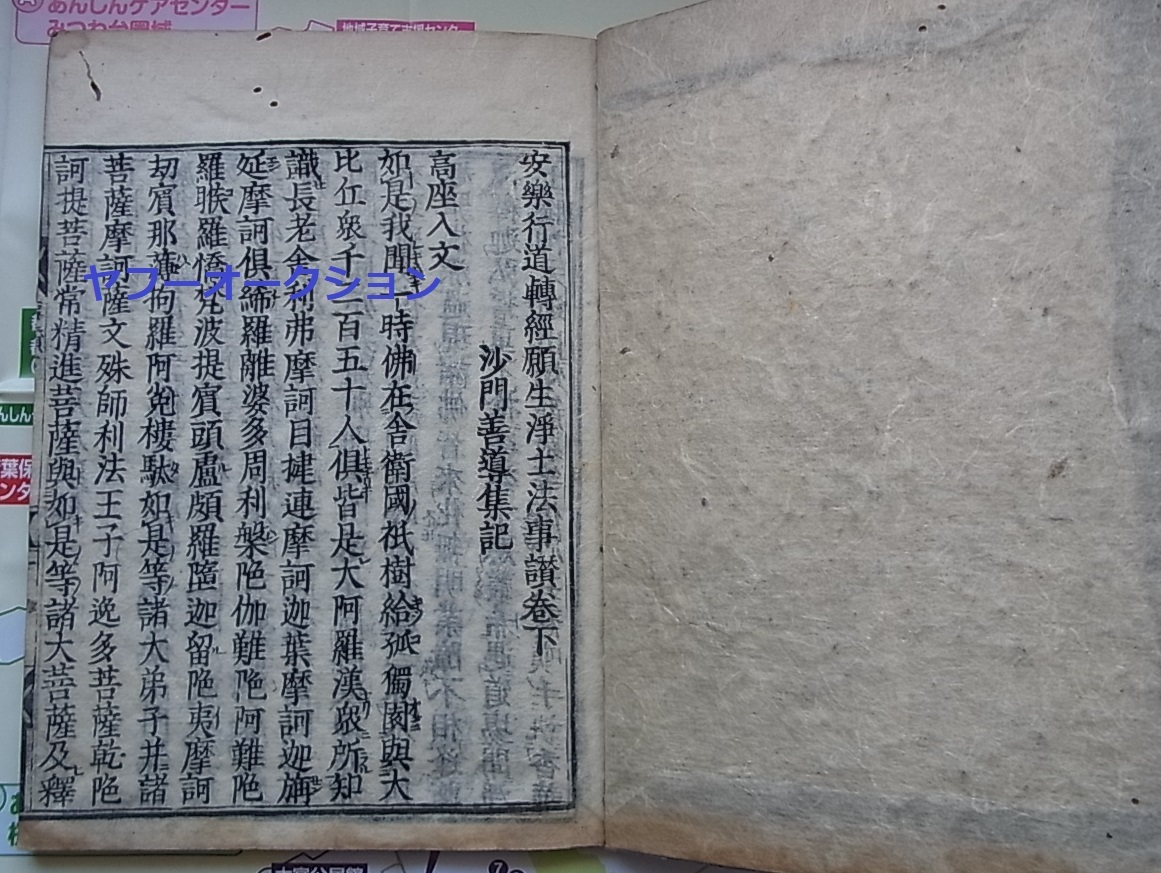 安樂行道轉經願生淨土法事讃卷下
沙門善導集記
高座入文
如是我聞一時佛在舎衛國祇樹給孤獨園與大
比丘衆千二百五十人俱皆是大阿羅漢衆所知
識長老舎利弗摩訶目揵連摩訶迦葉摩訶迦旃
延摩訶俱絺羅離婆多周利槃陁伽難陁阿難陁
羅睺羅憍梵波提賓頭盧頗羅墮迦留陁夷摩訶
劫賓那薄拘羅阿㝹樓駄如是等諸大弟子并諸
菩薩摩訶薩文殊師利法王子阿逸多菩薩乾陁
訶提菩薩常精進菩薩與如是等諸大菩薩及釋
ヤフーオークション
あんしんケアセンター
みつわ台圏域
地域子育て支援センター